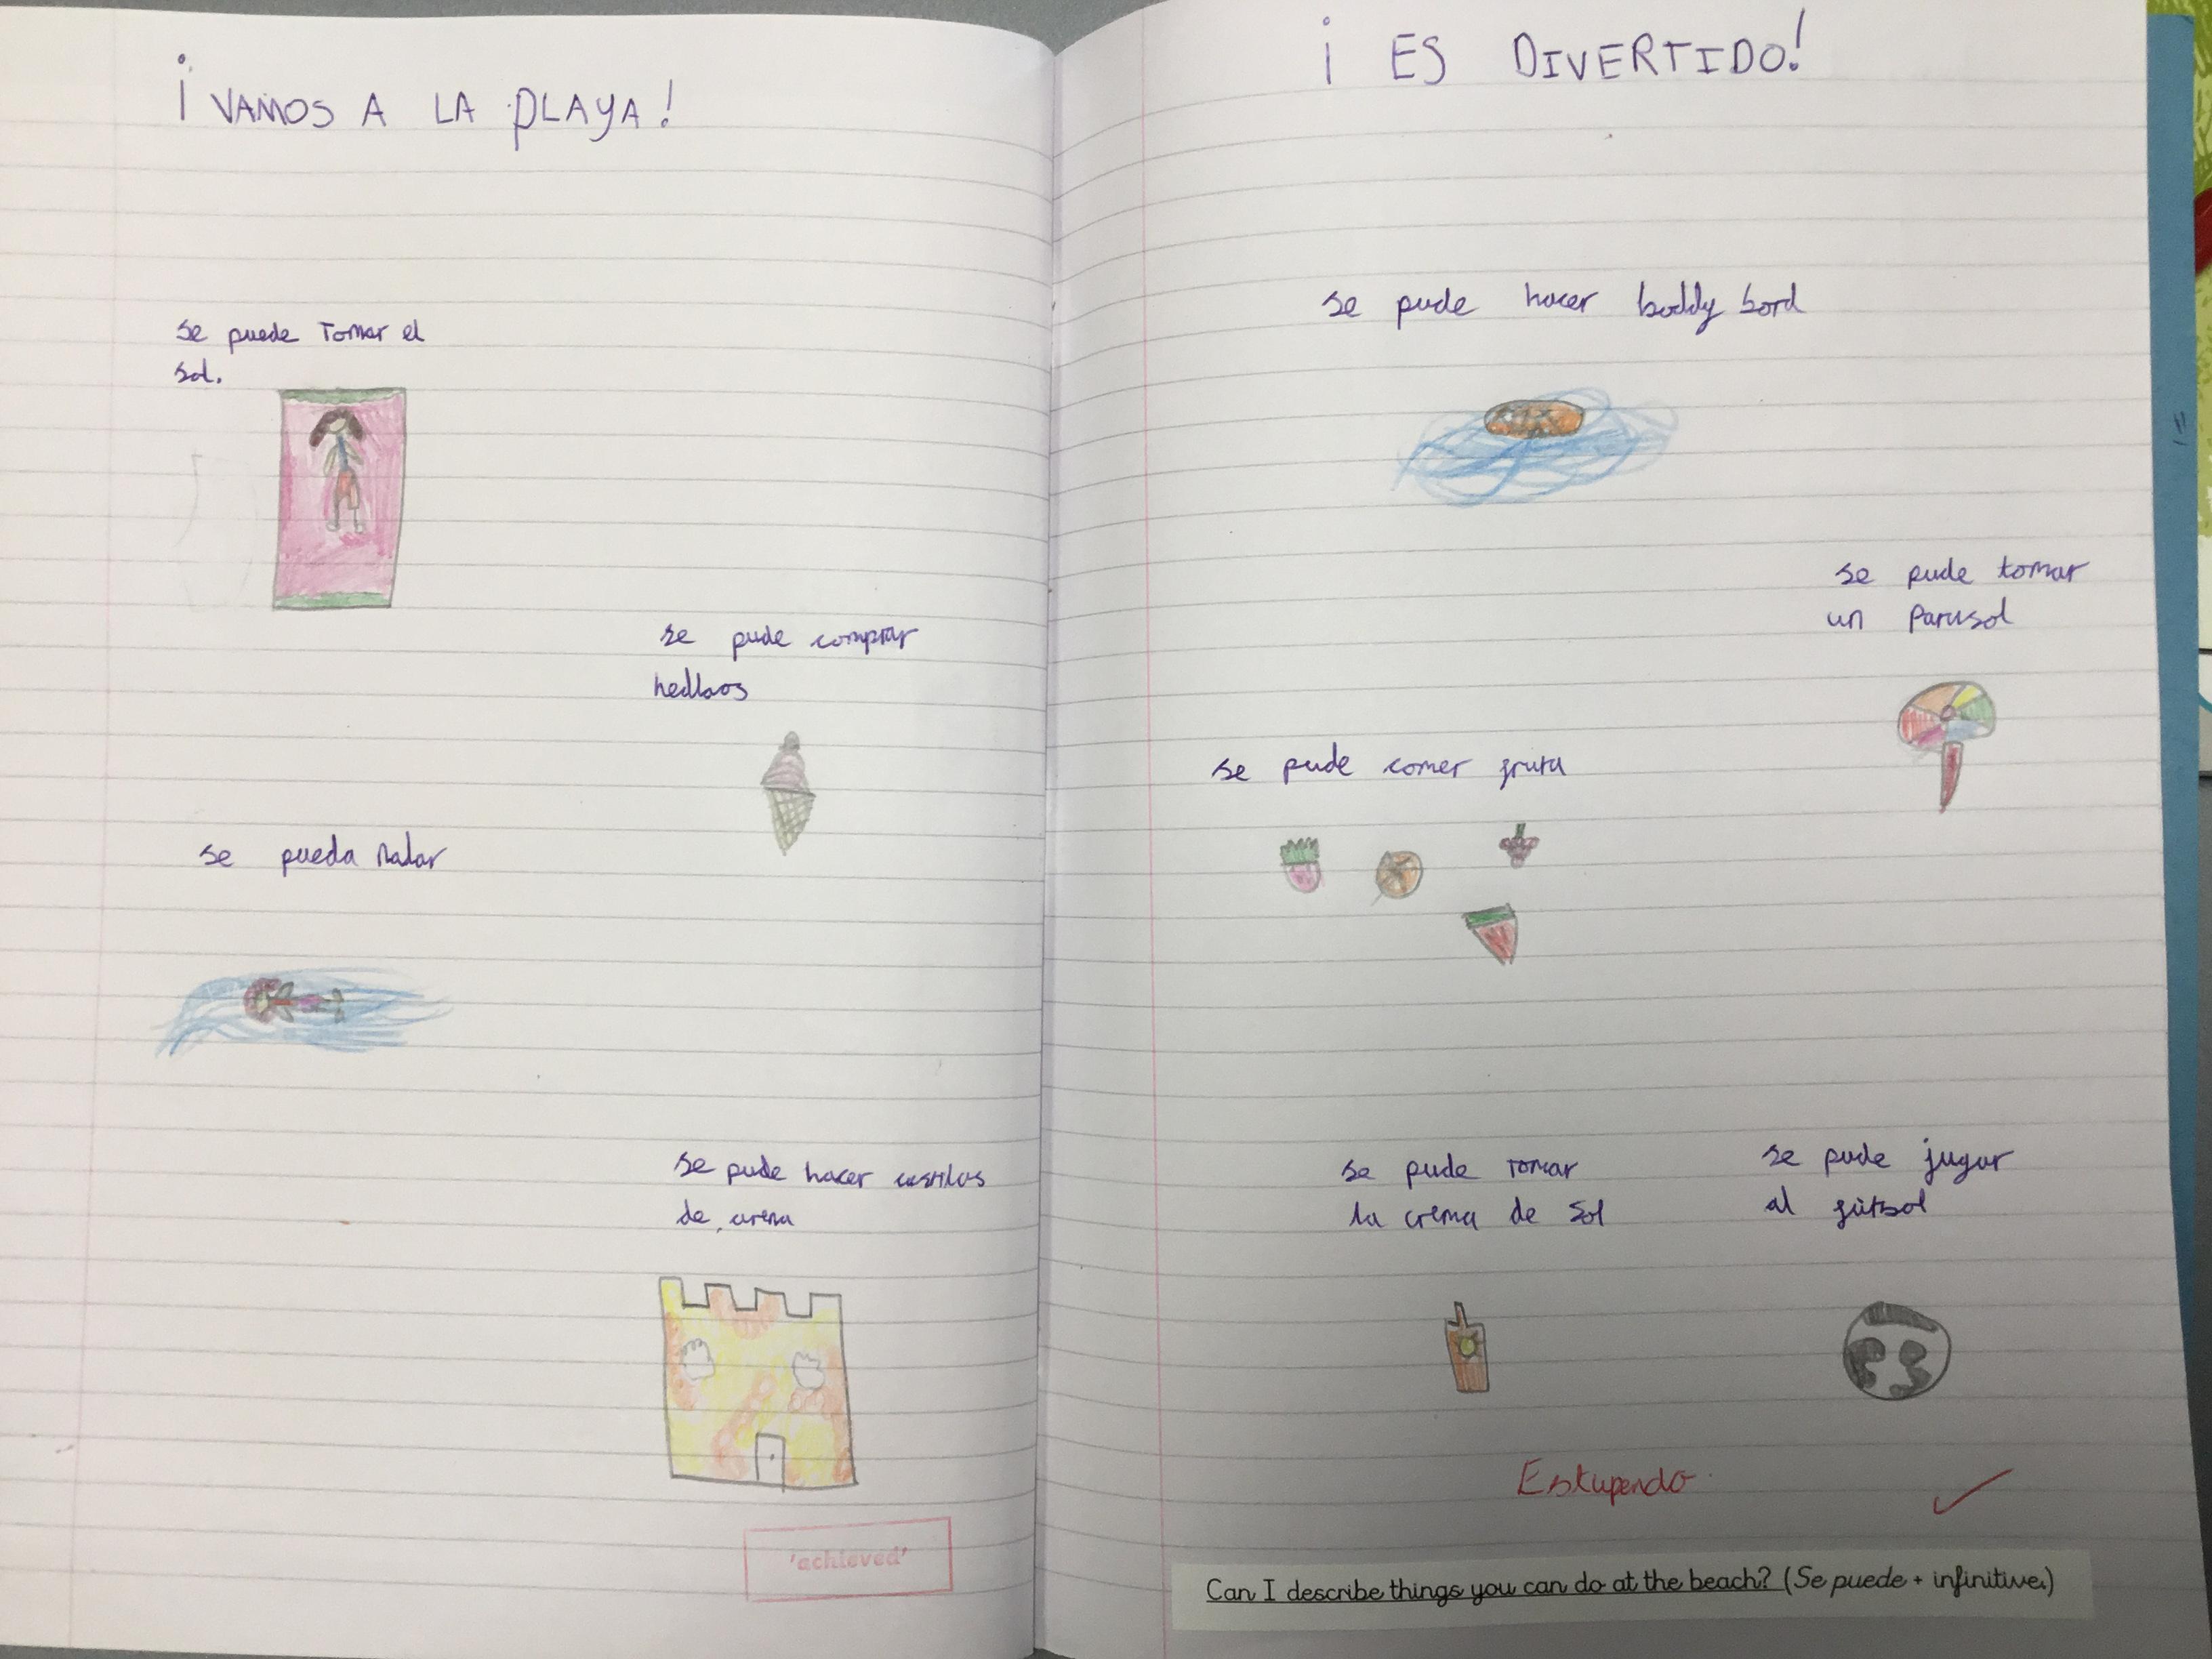 ¡ VAMOS A LA PLAYA!
se puede Tomar el
sol.
se pude comprar
hedlaos
se pueda nadar
se pude hacer castilas
de arena
'achieved'
¡ ES DIVERTIDO!
se pude hacer boddy bord
se pude tomar
un Parasol
se pude comer fruta
se pude tomar
la crema de sol
se pude jugar
al fútbol
Estupendo.
Can I describe things you can do at the beach? (Se puede + infinitive.)